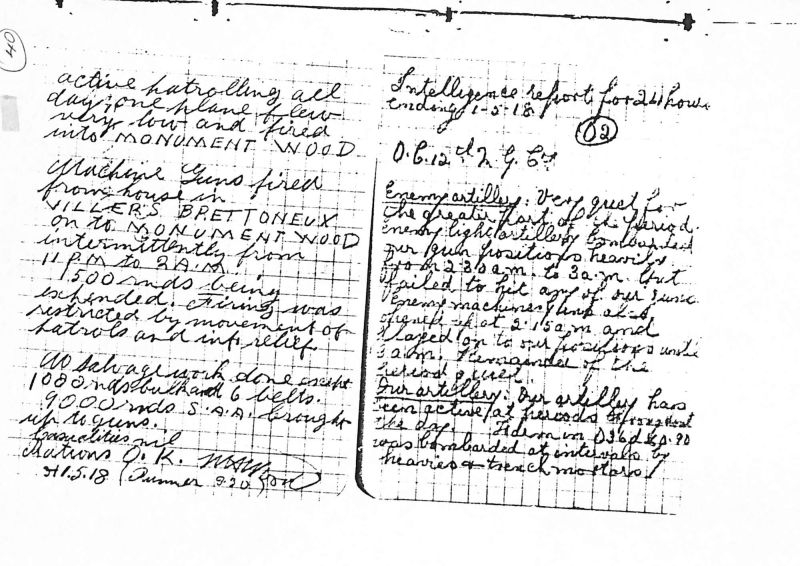 40
active patrolling all
day, one plane flew
very low and fired
into MONUMENT WOOD
Machine Guns fired
from house in
VILLERS BRETTONEUX
on to MONUMENT WOOD
intermittently from
11 P.M to 2 A.M.
1500 rnds being
expended. Firing was
restricted by movement of
patrols and inf. relief
No salvage work done except
1000 rnds bulk and 6 belts.
9000 rnds S.A.A. brought
up to guns.
Casualties nil
Rations O.K.
1.5.18 (Runner 9.20
Intelligence report for 24 hours
ending 1-5-18
O2
O.C. 12th M G Coy
Enemy artillery: Very quiet for
the greater part of the period.
Enemy light artillery bombarded
our gun positions heavily
from 2.30 a.m. to 3 a.m. but
failed to hit any of our guns
Enemy machine guns also
opened up at 2.15 a.m and
played on to our positions until
3 a.m. Remainder of the
period quiet.
Our artillery: Our artillery has
been active at periods throughout
the day.
was bombarded at intervals by
heavies & trench mortars